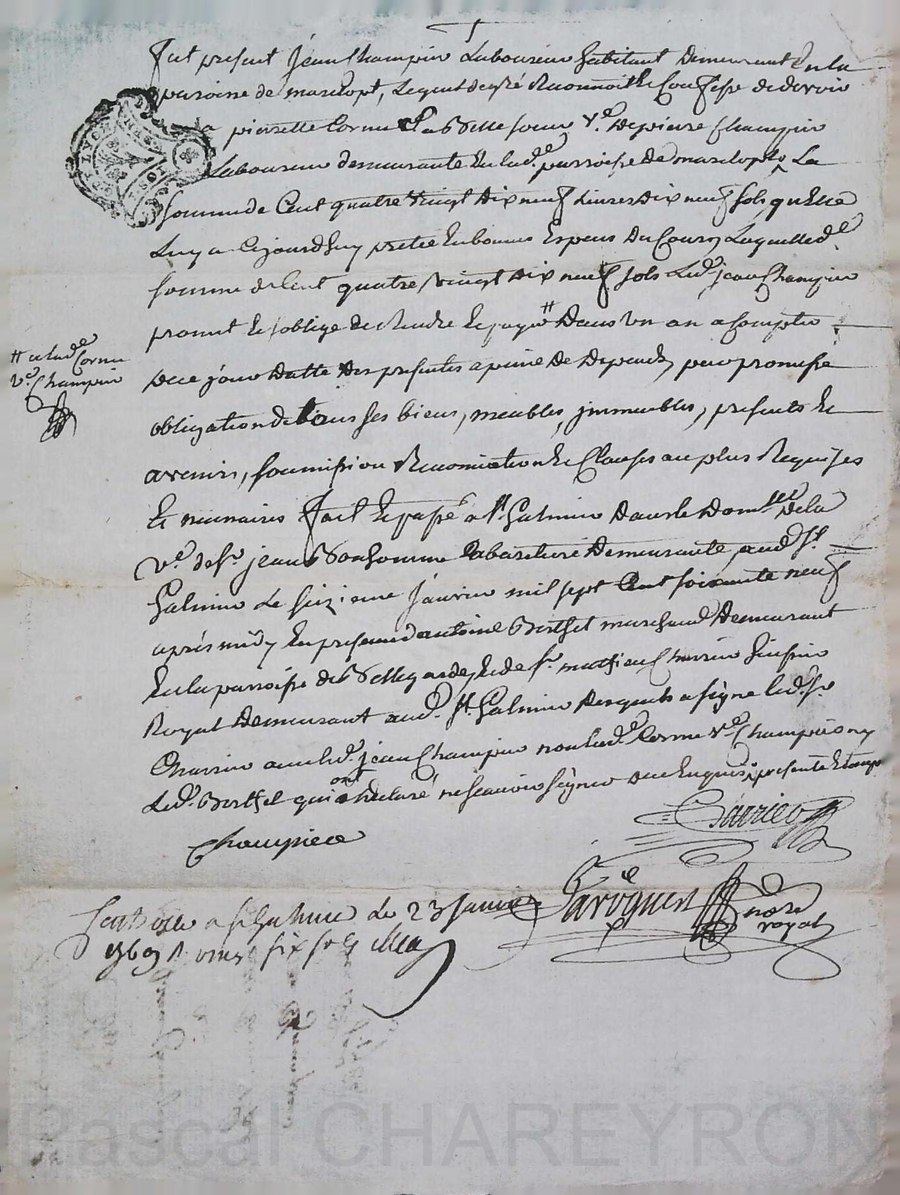 Fut présent jean Champin Laboureur habitant Demeurant En la
paroisse de marclopt, Lequel de gré Reconnoit Et Confesse de devoir
a pierrette Cornu Sa Belle soeur Ve. De pierre Champin
Laboureur demeurante En lad.e parroisse De marclopt, La
somme de Cent quatre vingt Dix neuf Livres Dix neuf sols, qu'Elle
Luy a Cejourdhuy pretée En bonnes Espeses Du Cours, Laquelle d.e
somme de Cent quatre vingt Dix neuf sols Led. jean Champin
promet Et s'oblige de Rendre Et payer # Dans Un an a Compter
# a lad.e Cornu
Ve. Champin
De ce jour Datte Des presentes a peine De Depends, par promesse
obligation de tous ses biens, meubles, jmmeubles, presents Et
avenirs, soumission Renonciation Et Clauses au plus Requises
Et necessaires Fait Et passé a St. Galmier Dans le Dom.lle De la
Ve. de Sr. jean Bonhomme Cabaretiere Demeurante aud. St.
Galmier Le seizieme Janvier mil sept Cent soixante neuf
après midy En presence d'antoine Berthet marchand Demeurant
En la parroisse de Bellegarde, Et de Sr. mathieu Charrin
Royal Demeurant aud. St. Galmier Desquels a signé led. Sr.
Charrin avec led. jean Champin non lad.e Cornu Ve. Champin ny
Led. Berthet qui ont declaré ne scavoir signer De ce Enquis
Champien
not.re
royal
a St Galmier Le 23 Janvier
1769 R vingt six sols
Pascal CHAREYRON